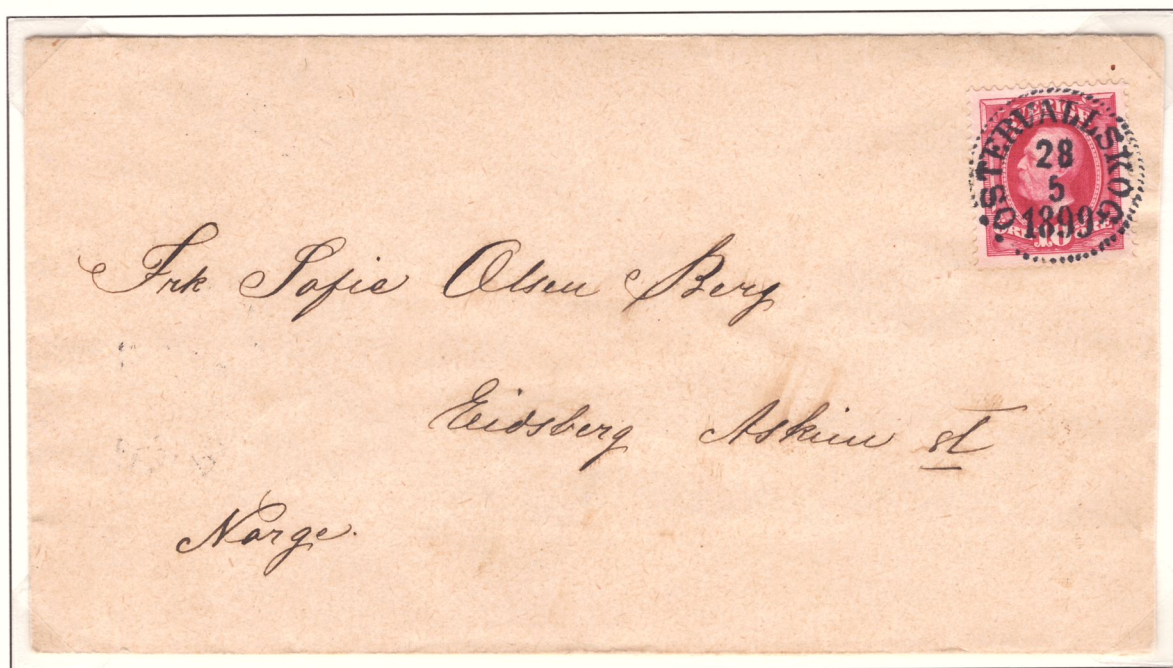 ÖSTERVALLSKOG
28
5
1899
Frk Sofie Olsen Berg
Eidsberg Askim st
Norge.